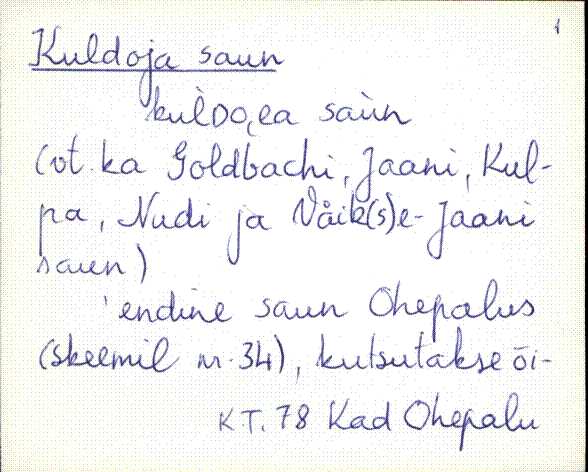 1
Kuldoja saun
kul̀Do͔i̯a saùn
(vt. ka Goldbachi, Jaani, Kul-
pa, Nudi ja Väik(s)e-Jaani
saun)
'endine saun Ohepalus
(skeemil nr. 34), kutsutakse õi-
KT. 78 Kad Ohepalu